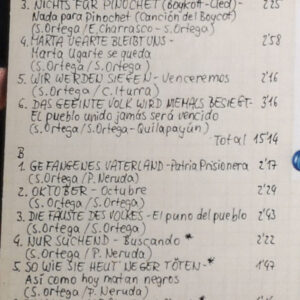 3. NICHTS FÜR PINOCHET (Boykott-Lied)- 2'25
Nada para Pinochet (Canción del Boycot)
(S. Ortega / E. Charrasco - S. Ortega)
4. MARTA UGARTE BLEIBT UNS - 2'58
Marta Ugarte se queda
(S. Ortega / S. Ortega)
5. WIR WERDEN SIEGEN - Venceremos 2'16
(S. Ortega / C. Iturra)
6. DAS GEEINTE VOLK WIRD NIEMALS BESIEGT- 3'16
El pueblo unido jamás será vencido
(S. Ortega / S. Ortega - Quilapayún)
Total 15'14
B
1. GEFANGENES VATERLAND - Patria Prisionera 2'17
(S. Ortega / P. Neruda)
2. OKTOBER - Octubre 2'29
(S. Ortega / S. Ortega)
3. DIE FÄUSTE DES VOLKES - El puno del pueblo 2'43
(S. Ortega / S. Ortega)
4. NUR SUCHEND - Buscando * 2'22
(S. Ortega / P. Neruda)
5. SO WIE SIE HEUT' NEGER TÖTEN - * 1'47
Así como hoy matan negros
(S. Ortega / P. Neruda)